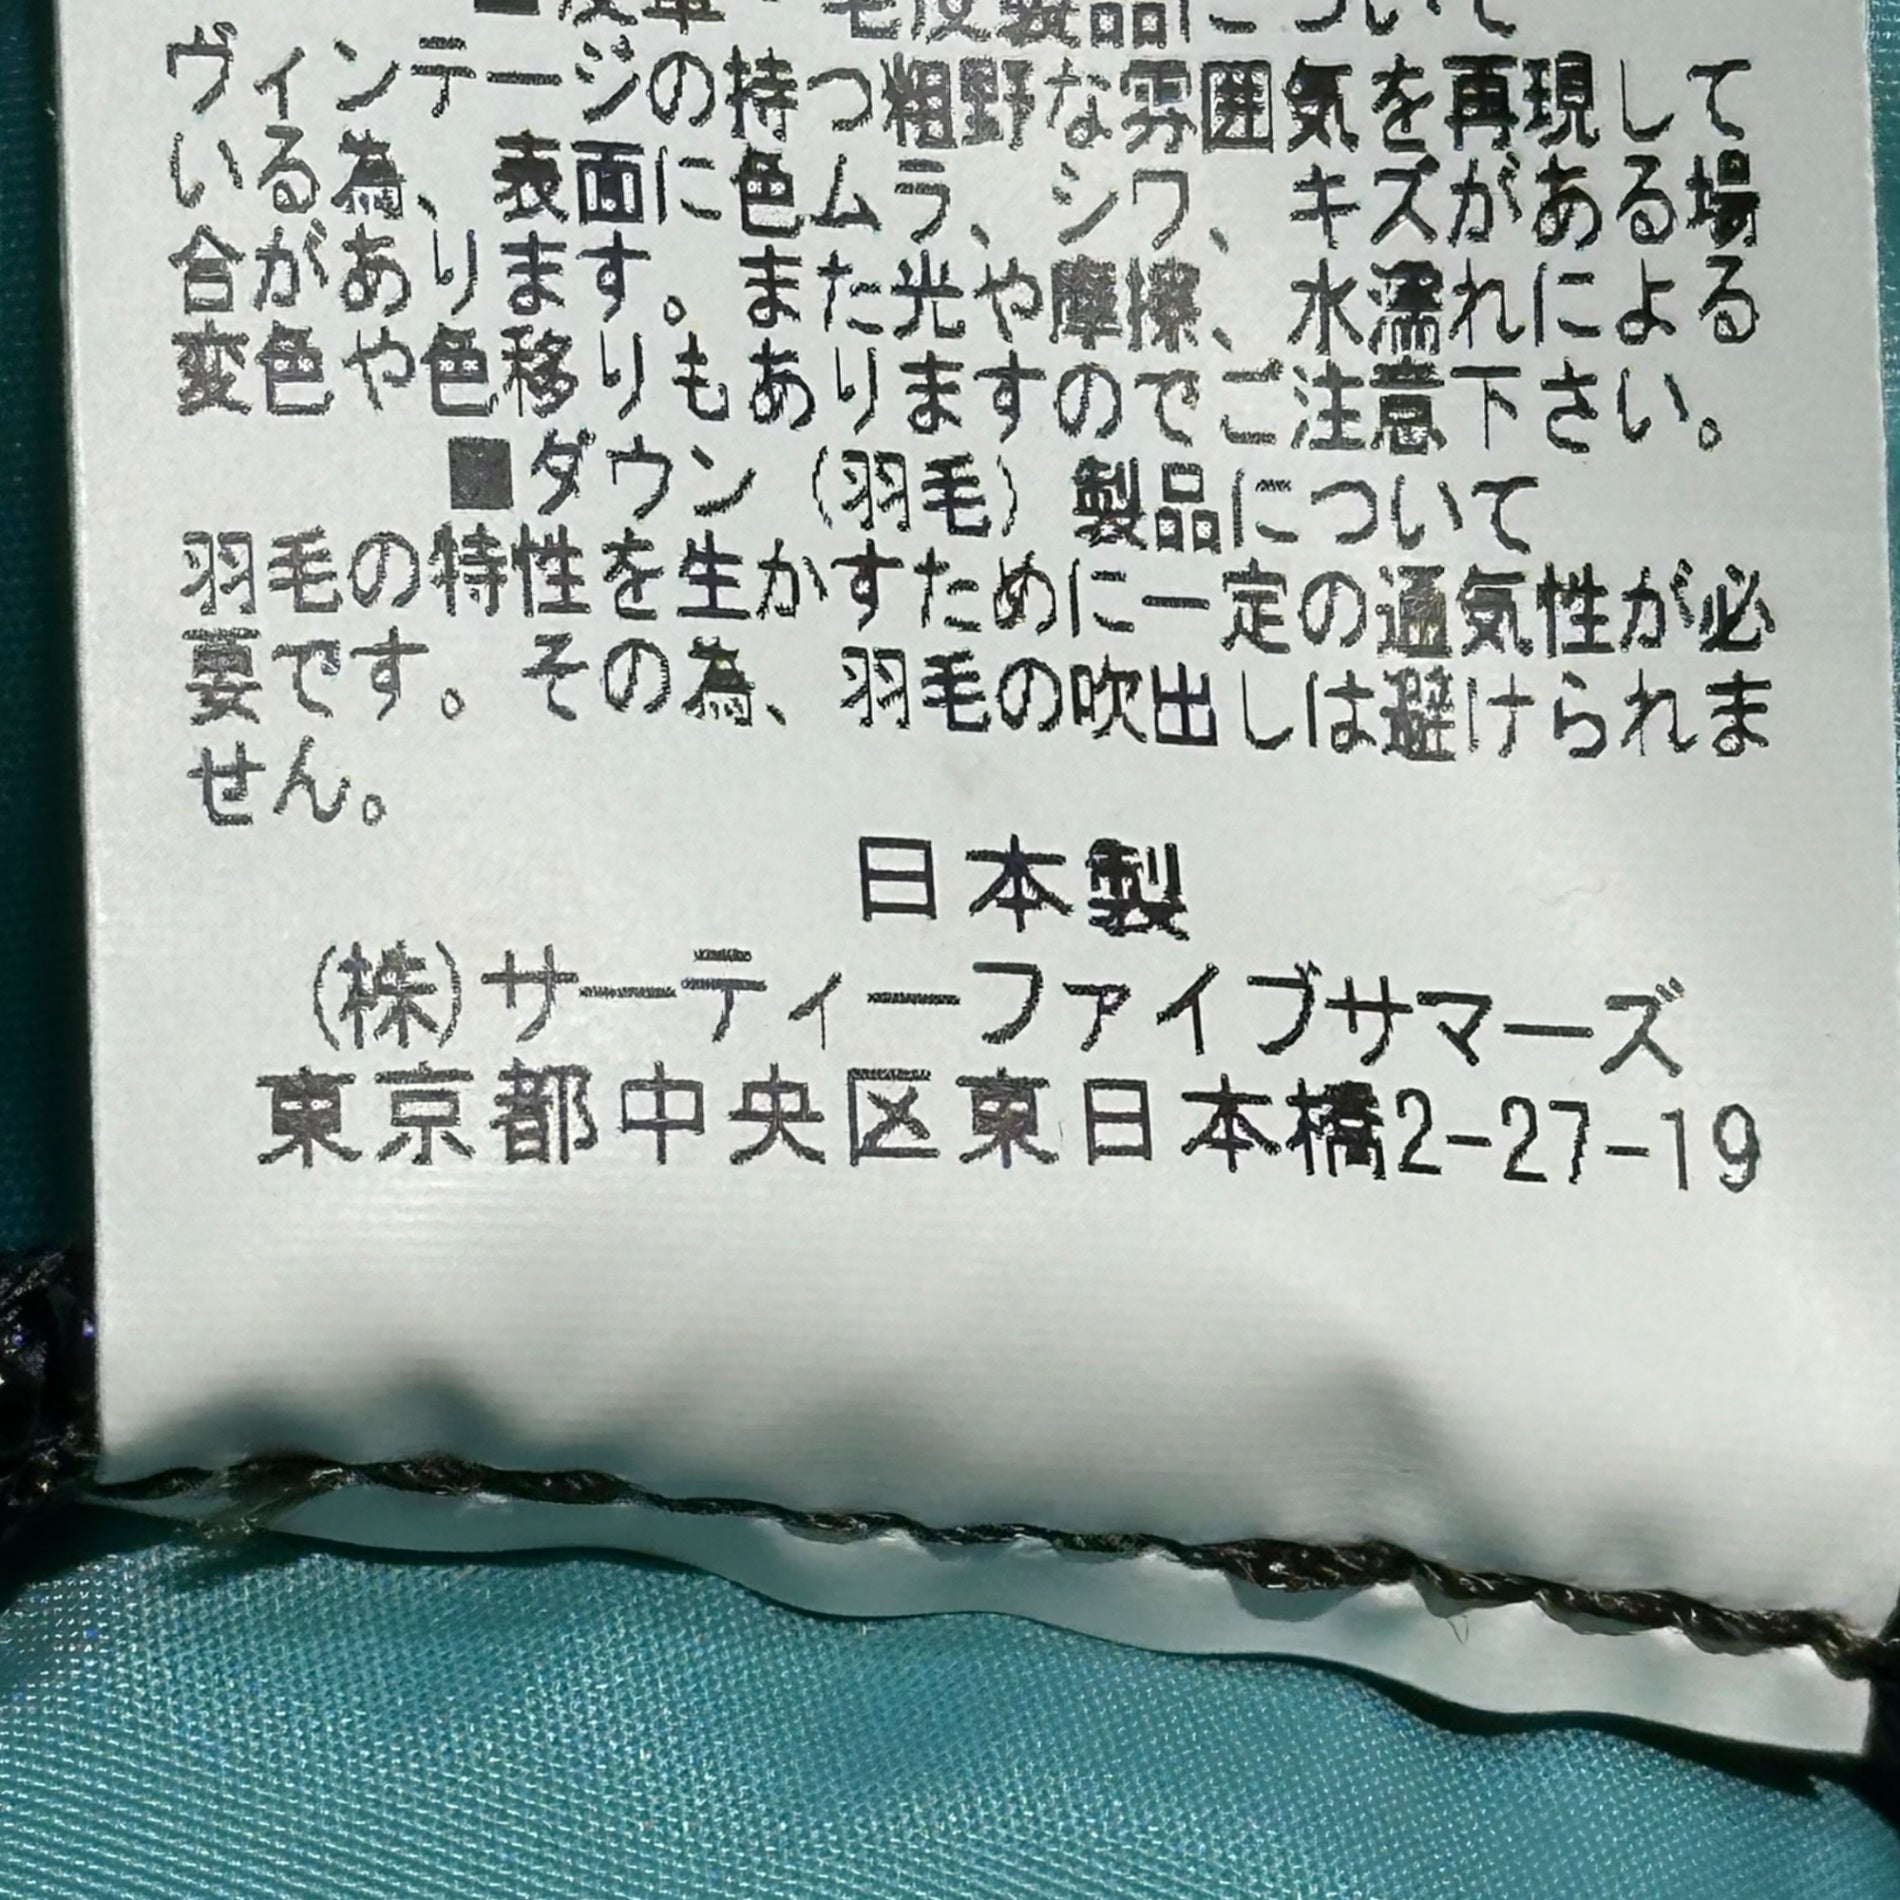 ■皮革・毛皮製品について
ヴィンテージの持つ粗野な雰囲気を再現して
いる為、表面に色ムラ、シワ、キズがある場
合があります。また光や摩擦、水濡れによる
変色や色移りもありますのでご注意下さい。
■ダウン（羽毛）製品について
羽毛の特性を生かすために一定の通気性が必
要です。その為、羽毛の吹出しは避けられま
せん。
日本製
(株)サーティーファイブサマーズ
東京都中央区東日本橋2-27-19